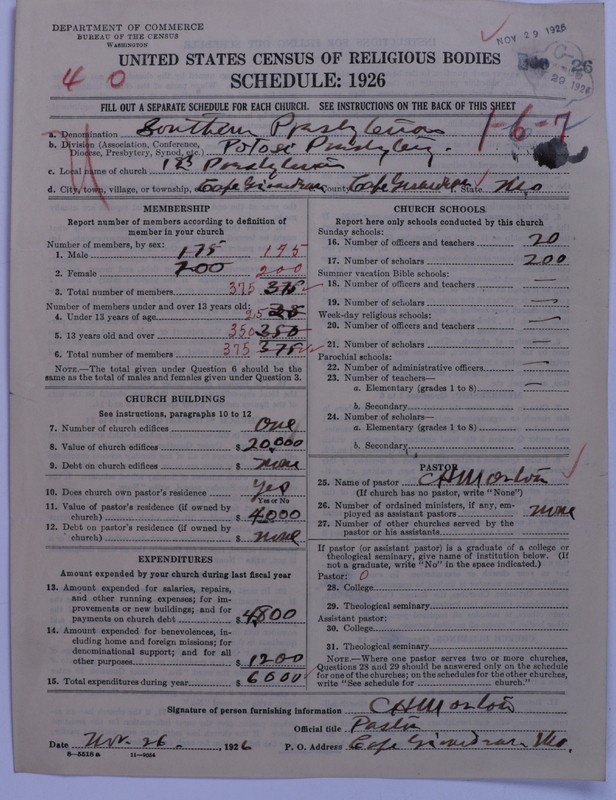 DEPARTMENT OF COMMERCE
BUREAU OF THE CENSUS
WASHINGTON
NOV 29 1926
UNITED STATES CENSUS OF RELIGIOUS BODIES
SCHEDULE: 1926
4 0
26
29 1926
FILL OUT A SEPARATE SCHEDULE FOR EACH CHURCH. SEE INSTRUCTIONS ON THE BACK OF THIS SHEET
1-6-7
a. Denomination Southern Presbyterian
b. Division (Association, Conference, Diocese, Presbytery, Synod, etc.) Potosi Presbytery.
c. Local name of church 1st Presbyterian
d. City, town, village, or township, Cape Girardeau County Cape Girardeau State Mo
MEMBERSHIP
Report number of members according to definition of
member in your church
Number of members, by sex:
1. Male 175 175
2. Female 200 200
3. Total number of members 375 375
Number of members under and over 13 years old:
4. Under 13 years of age 25 25
5. 13 years old and over 350 350
6. Total number of members 375 375
NOTE.—The total given under Question 6 should be
same as the total of males and females given under Question 3.
CHURCH BUILDINGS
See instructions, paragraphs 10 to 12
7. Number of church edifices One
8. Value of church edifices $ 20,000
9. Debt on church edifices $ none
10. Does church own pastor's residence Yes
Yes or No
11. Value of pastor's residence (if owned by
church) $ 4000
12. Debt on pastor's residence (if owned by
church) $ none
EXPENDITURES
Amount expended by your church during last fiscal year
13. Amount expended for salaries, repairs,
and other running expenses; for im-
provements or new buildings; and for
payments on church debt $ 4800
14. Amount expended for benevolences, in-
cluding home and foreign missions; for
denominational support; and for all
other purposes $ 1200
15. Total expenditures during year $ 6000
CHURCH SCHOOLS
Report here only schools conducted by this church
Sunday schools:
16. Number of officers and teachers 20
17. Number of scholars 200
Summer vacation Bible schools:
18. Number of officers and teachers —
19. Number of scholars —
Week-day religious schools:
20. Number of officers and teachers —
21. Number of scholars —
Parochial schools:
22. Number of administrative officers —
23. Number of teachers—
a. Elementary (grades 1 to 8) —
b. Secondary
24. Number of scholars—
a. Elementary (grades 1 to 8) —
b. Secondary
PASTOR
25. Name of pastor C H Morton
(If church has no pastor, write "None")
26. Number of ordained ministers, if any, em-
ployed as assistant pastors none
27. Number of other churches served by the
pastor or his assistants
If pastor (or assistant pastor) is a graduate of a college or
theological seminary, give name of institution below. (If
not a graduate, write "No" in the space indicated.)
Pastor: 0
28. College
29. Theological seminary
Assistant pastor:
30. College
31. Theological seminary
NOTE.—Where one pastor serves two or more churches,
Questions 28 and 29 should be answered only on the schedule
for one of the churches; on the schedules for the other churches,
write "See schedule for church."
Signature of person furnishing information C H Morton
Official title Pastor
Date Nov. 26, 1926 P. O. Address Cape Girardeau Mo,
8—5518a 11—9054